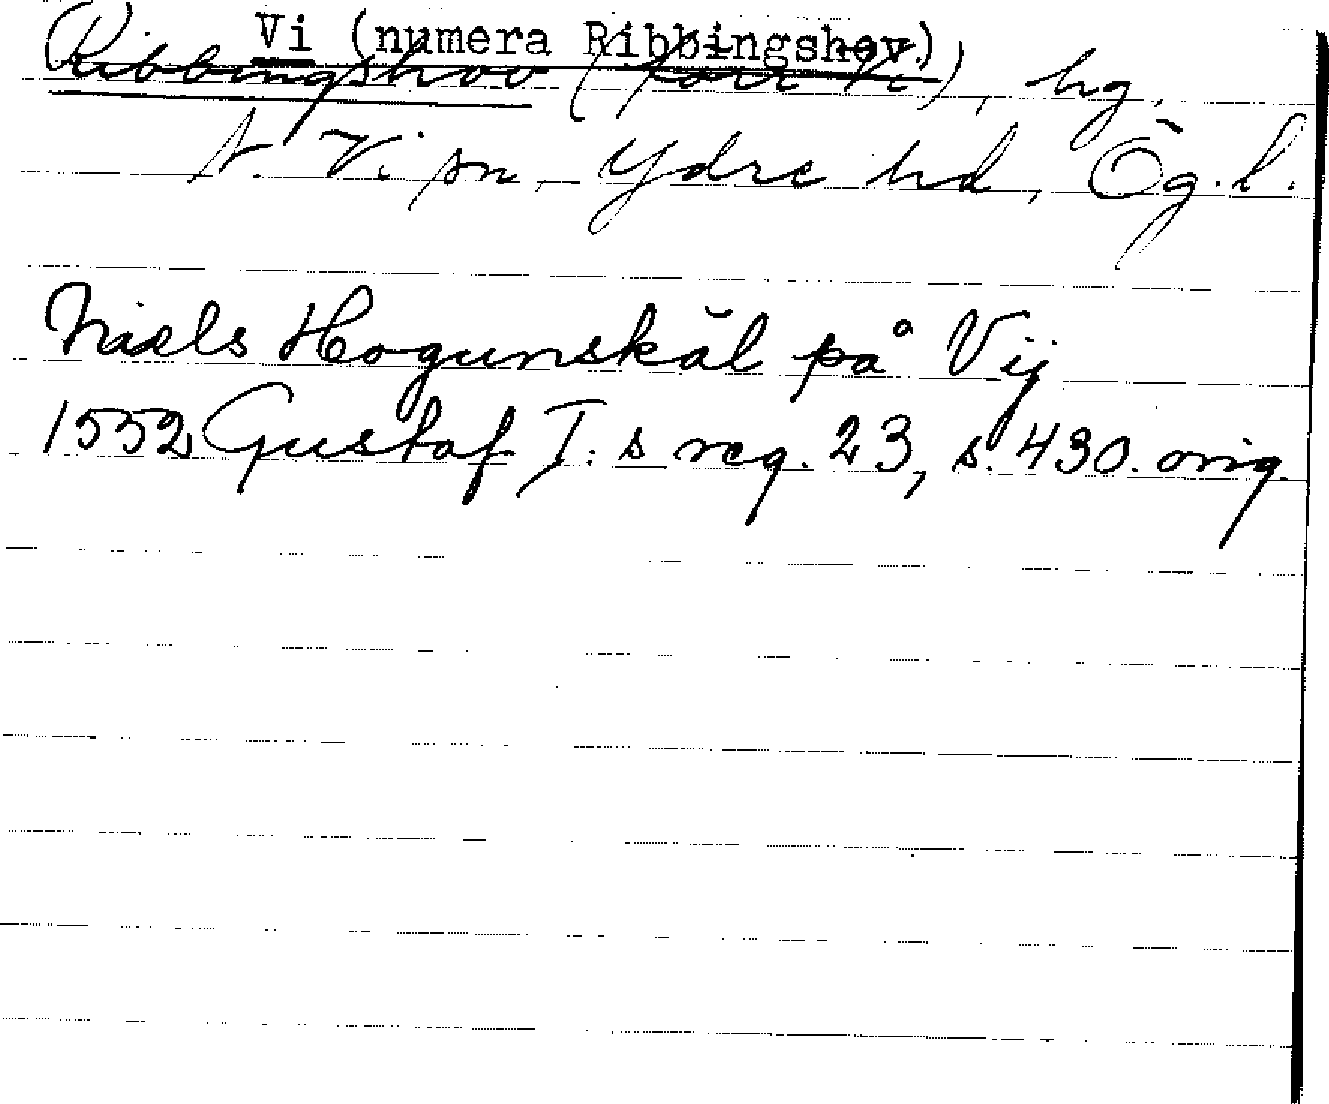 Vi (numera Ribbingshov.)
Ribbingshov (förr Vi), hg.
N. Vi sn, Ydre hd, Ög. l.
Niels Hogunskäl på Vij
1552 Gustaf I:s reg. 23, s. 430. orig.